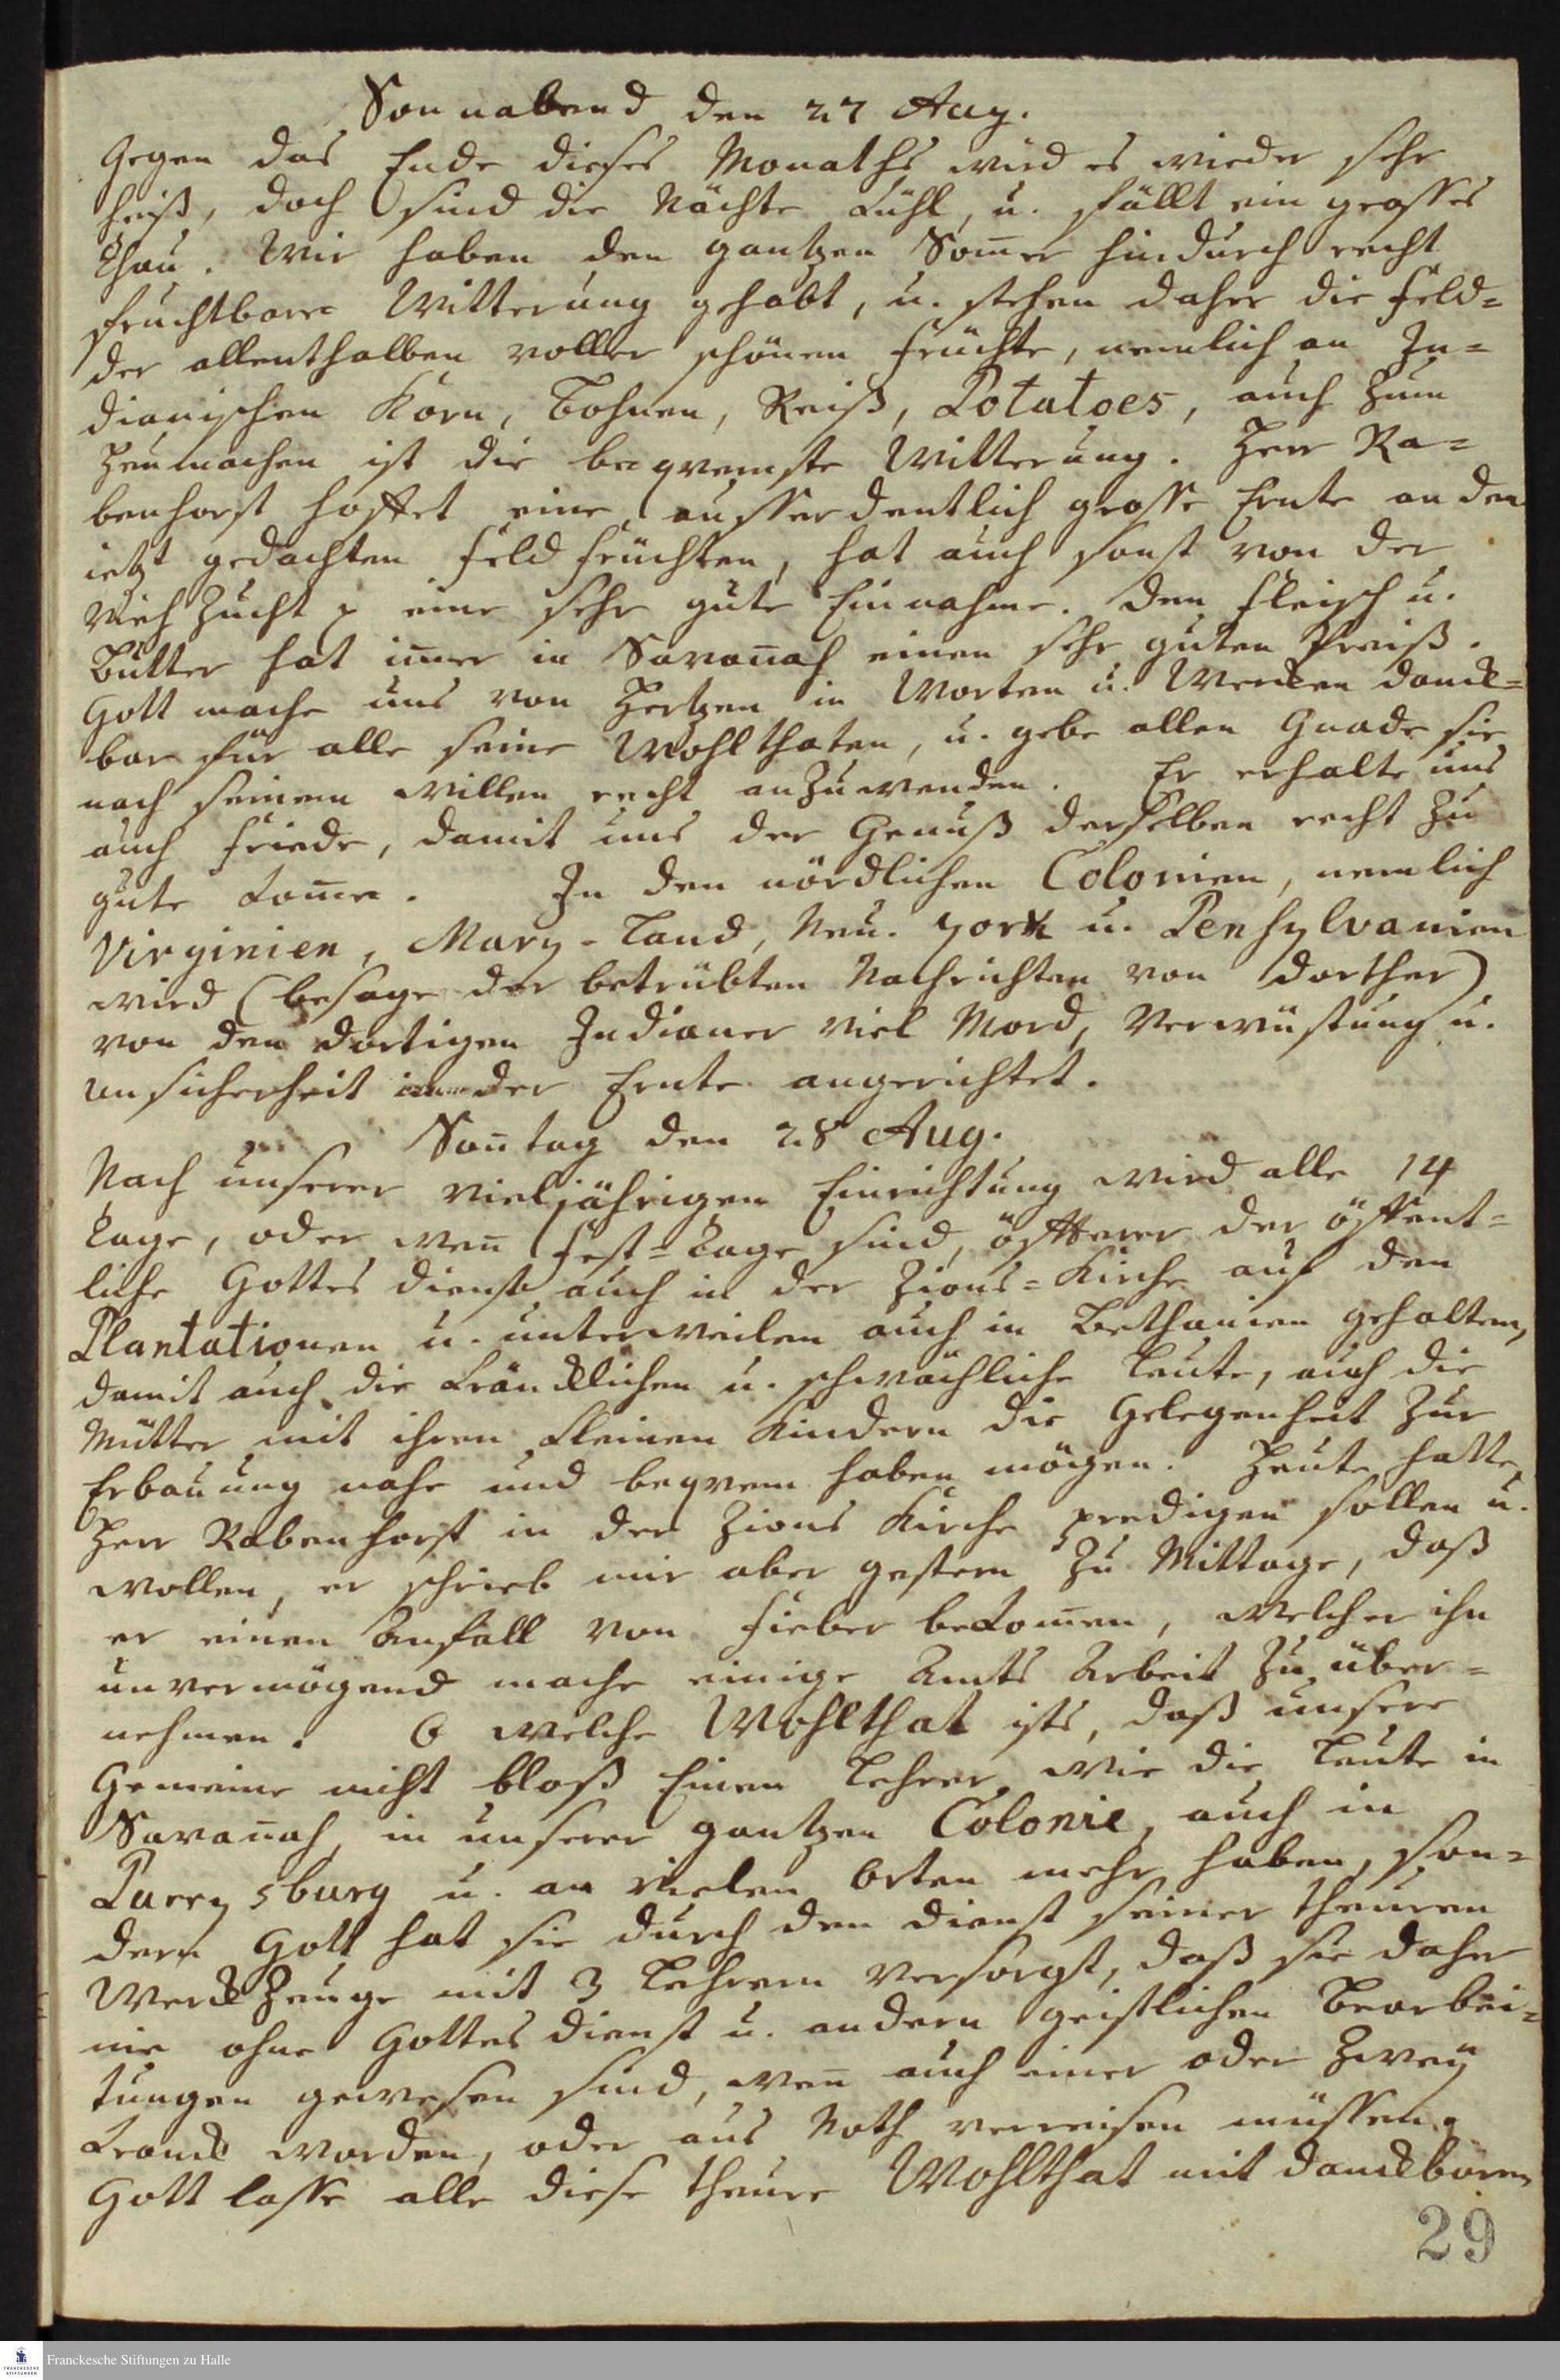 Sonnabend den 27 Aug.
Gegen das Ende dieses Monaths wird es wieder sehr
heiß, doch sind die Nächte kühl, u. fällt ein grosses
Thau. Wir haben den gantzen Som̄er hindurch recht
fruchtbare Witterung gehabt, u. stehen daher die Feld=
der allenthalben voller schönen Früchte, nemlich an In=
dianischen Korn, Bohnen, Reiß, Potatoes, auch zum
Heumachen ist die beqvemste Witterung. Herr Ra=
benhorst hoffet eine ausserdentlich grosse Ernte an den
ietzt gedachten Feld Früchten, hat auch sonst von der
Vieh Zucht p eine sehr gute Einnahme. Den Fleisch u.
Butter hat im̄er in Savan̄ah einen sehr guten Preiß.
Gott mache uns von Hertzen in Worten u. Wercken danck=
bar für alle seine Wohlthaten, u. gebe allen Gnade sie
nach seinem Willen recht anzuwenden. Er erhalte uns
auch Friede, damit uns der Genuß derselben recht zu
gute kom̄e. In den nördlichen Colonien, nemlich
Virginien, Mary-Land, Neu. York u. Pensylvanien
wird (besage der betrübten Nachrichten von dorther)
von den dortigen Indianer viel Mord, Verwüstung u.
Unsicherheit in der Ernte angerichtet.
Son̄tag den 28 Aug.
Nach unserer vieljährigen Einrichtung wird alle 14
Tage, oder wen̄ Fest=Tage sind, öffterer der öffent=
liche Gottes dienst auch in der Zions=Kirche auf den
Plantationen u. unterweilen auch in Bethanien gehalten,
damit auch die kräncklichen u. schwächliche Leute, auch die
Mütter mit ihren kleinen Kindern die Gelegenheit zur
Erbauung nahe und beqvem haben mögen. Heute hatte
Herr Rabenhorst in der Zions Kirche predigen sollen u.
wollen, er schrieb mir aber gestern zu Mittage, daß
er einen Anfall von Fieber bekom̄en, welcher ihn
unvermögend mache einige Amts Arbeit zu über=
nehmen. O welche Wohlthat ists, daß unsere
Gemeine nicht bloß Einen Lehrer, wie die Leute in
Savan̄ah, in unserer gantzen Colonie, auch in
Purrysburg u. an vielen Orten mehr haben, son=
dern Gott hat sie durch den Dienst seiner theuren
Werckzeuge mit 3 Lehrern versorgt, daß sie daher
nie ohne Gottesdienst u. andern geistlichen Bearbei=
tungen gewesen sind, wen̄ auch einer oder zwey
kranck worden, oder aus Noth verreisen müssen.
Gott lasse alle diese theure Wohlthat mit danckbaren
29
FRANCKESCHE STIFTUNGEN
Franckesche Stiftungen zu Halle